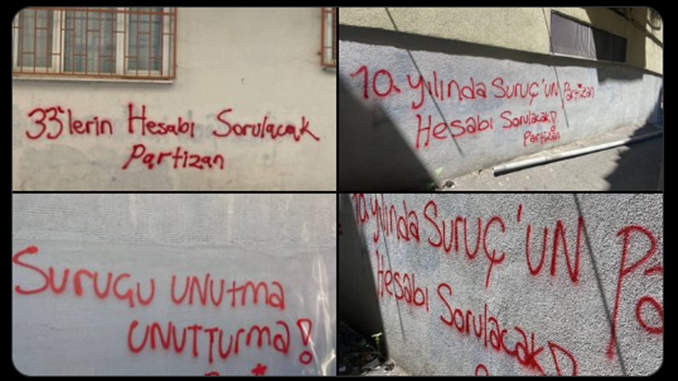 33'lerin Hesabı Sorulacak
Partizan
10. yılında Suruç'un Partizan
Hesabı Sorulacak!
Partizan
Suruçu unutma
unutturma!
10. yılında Suruç'un
Hesabı Sorulacak